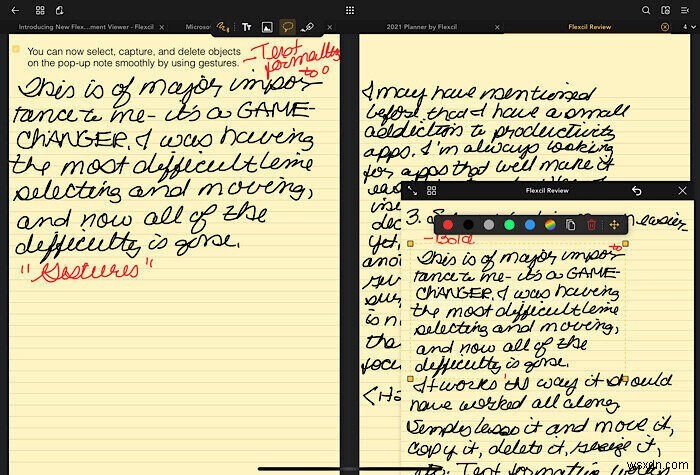 Introducing New Flex...ment Viewer - Flexcil
Microso
Tt
2021 Planner by Flexcil
Flexcil Review
4
You can now select, capture, and delete objects
on the pop-up note smoothly by using gestures.
- Text
formatting
too
This is of major impor
tance to me- it's a GAME-
CHANGER. I was having
the most difficult time
selecting and moving,
and now all of the
difficulty is gone.
"Gestures"
I may have mentioned
before that I have a small
addiction to productivity
apps. I'm always looking
for apps that will make it
Flexcil Review
3.
easier
- Bold
to
This is of major impor
tance to me- it's a GAME-
CHANGER. I was having
the most difficult time
selecting and moving,
and now all of the
difficulty is gone.
It works the way it should
have worked all along
Simply lasso it and move it,
copy it, delete it, resize it,
etc. Text formatting works
is n
tha
focu
wsxdn.com